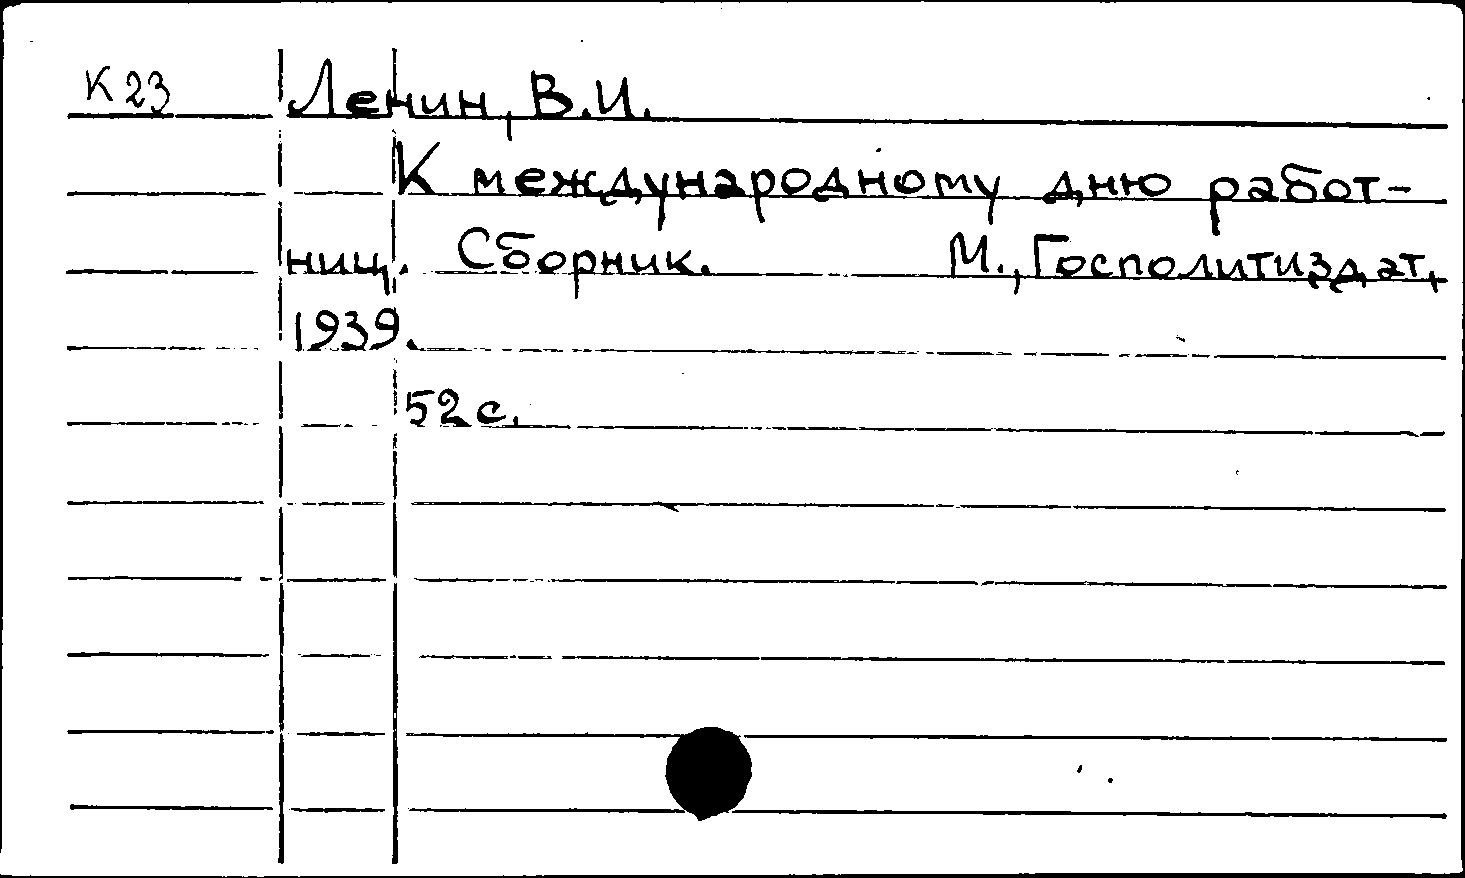 К23 Ленин, В.И.
К международному дню работ-
ниц. Сборник. М., Госполитиздат,
1939.
52 с.